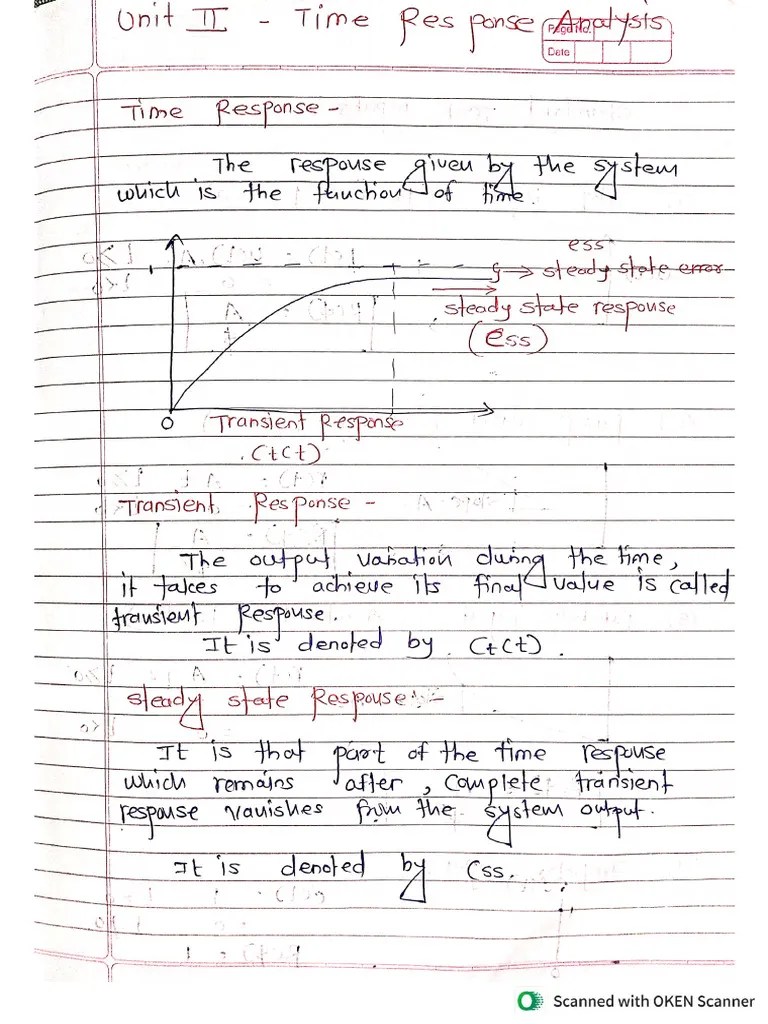 Unit II - Time Response Analysis
Page No.
Date
Time Response -
The response given by the system
which is the function of time.
ess
1
→ steady state error
steady state response
(ess)
0
Transient Response
Ct(t)
Transient Response -
The output variation during the time,
it takes to achieve its final value is called
transient Response.
It is denoted by Ct(t).
Steady state Response :-
It is that part of the time response
which remains after, complete transient
response vanishes from the system output.
It is denoted by Css.
Scanned with OKEN Scanner